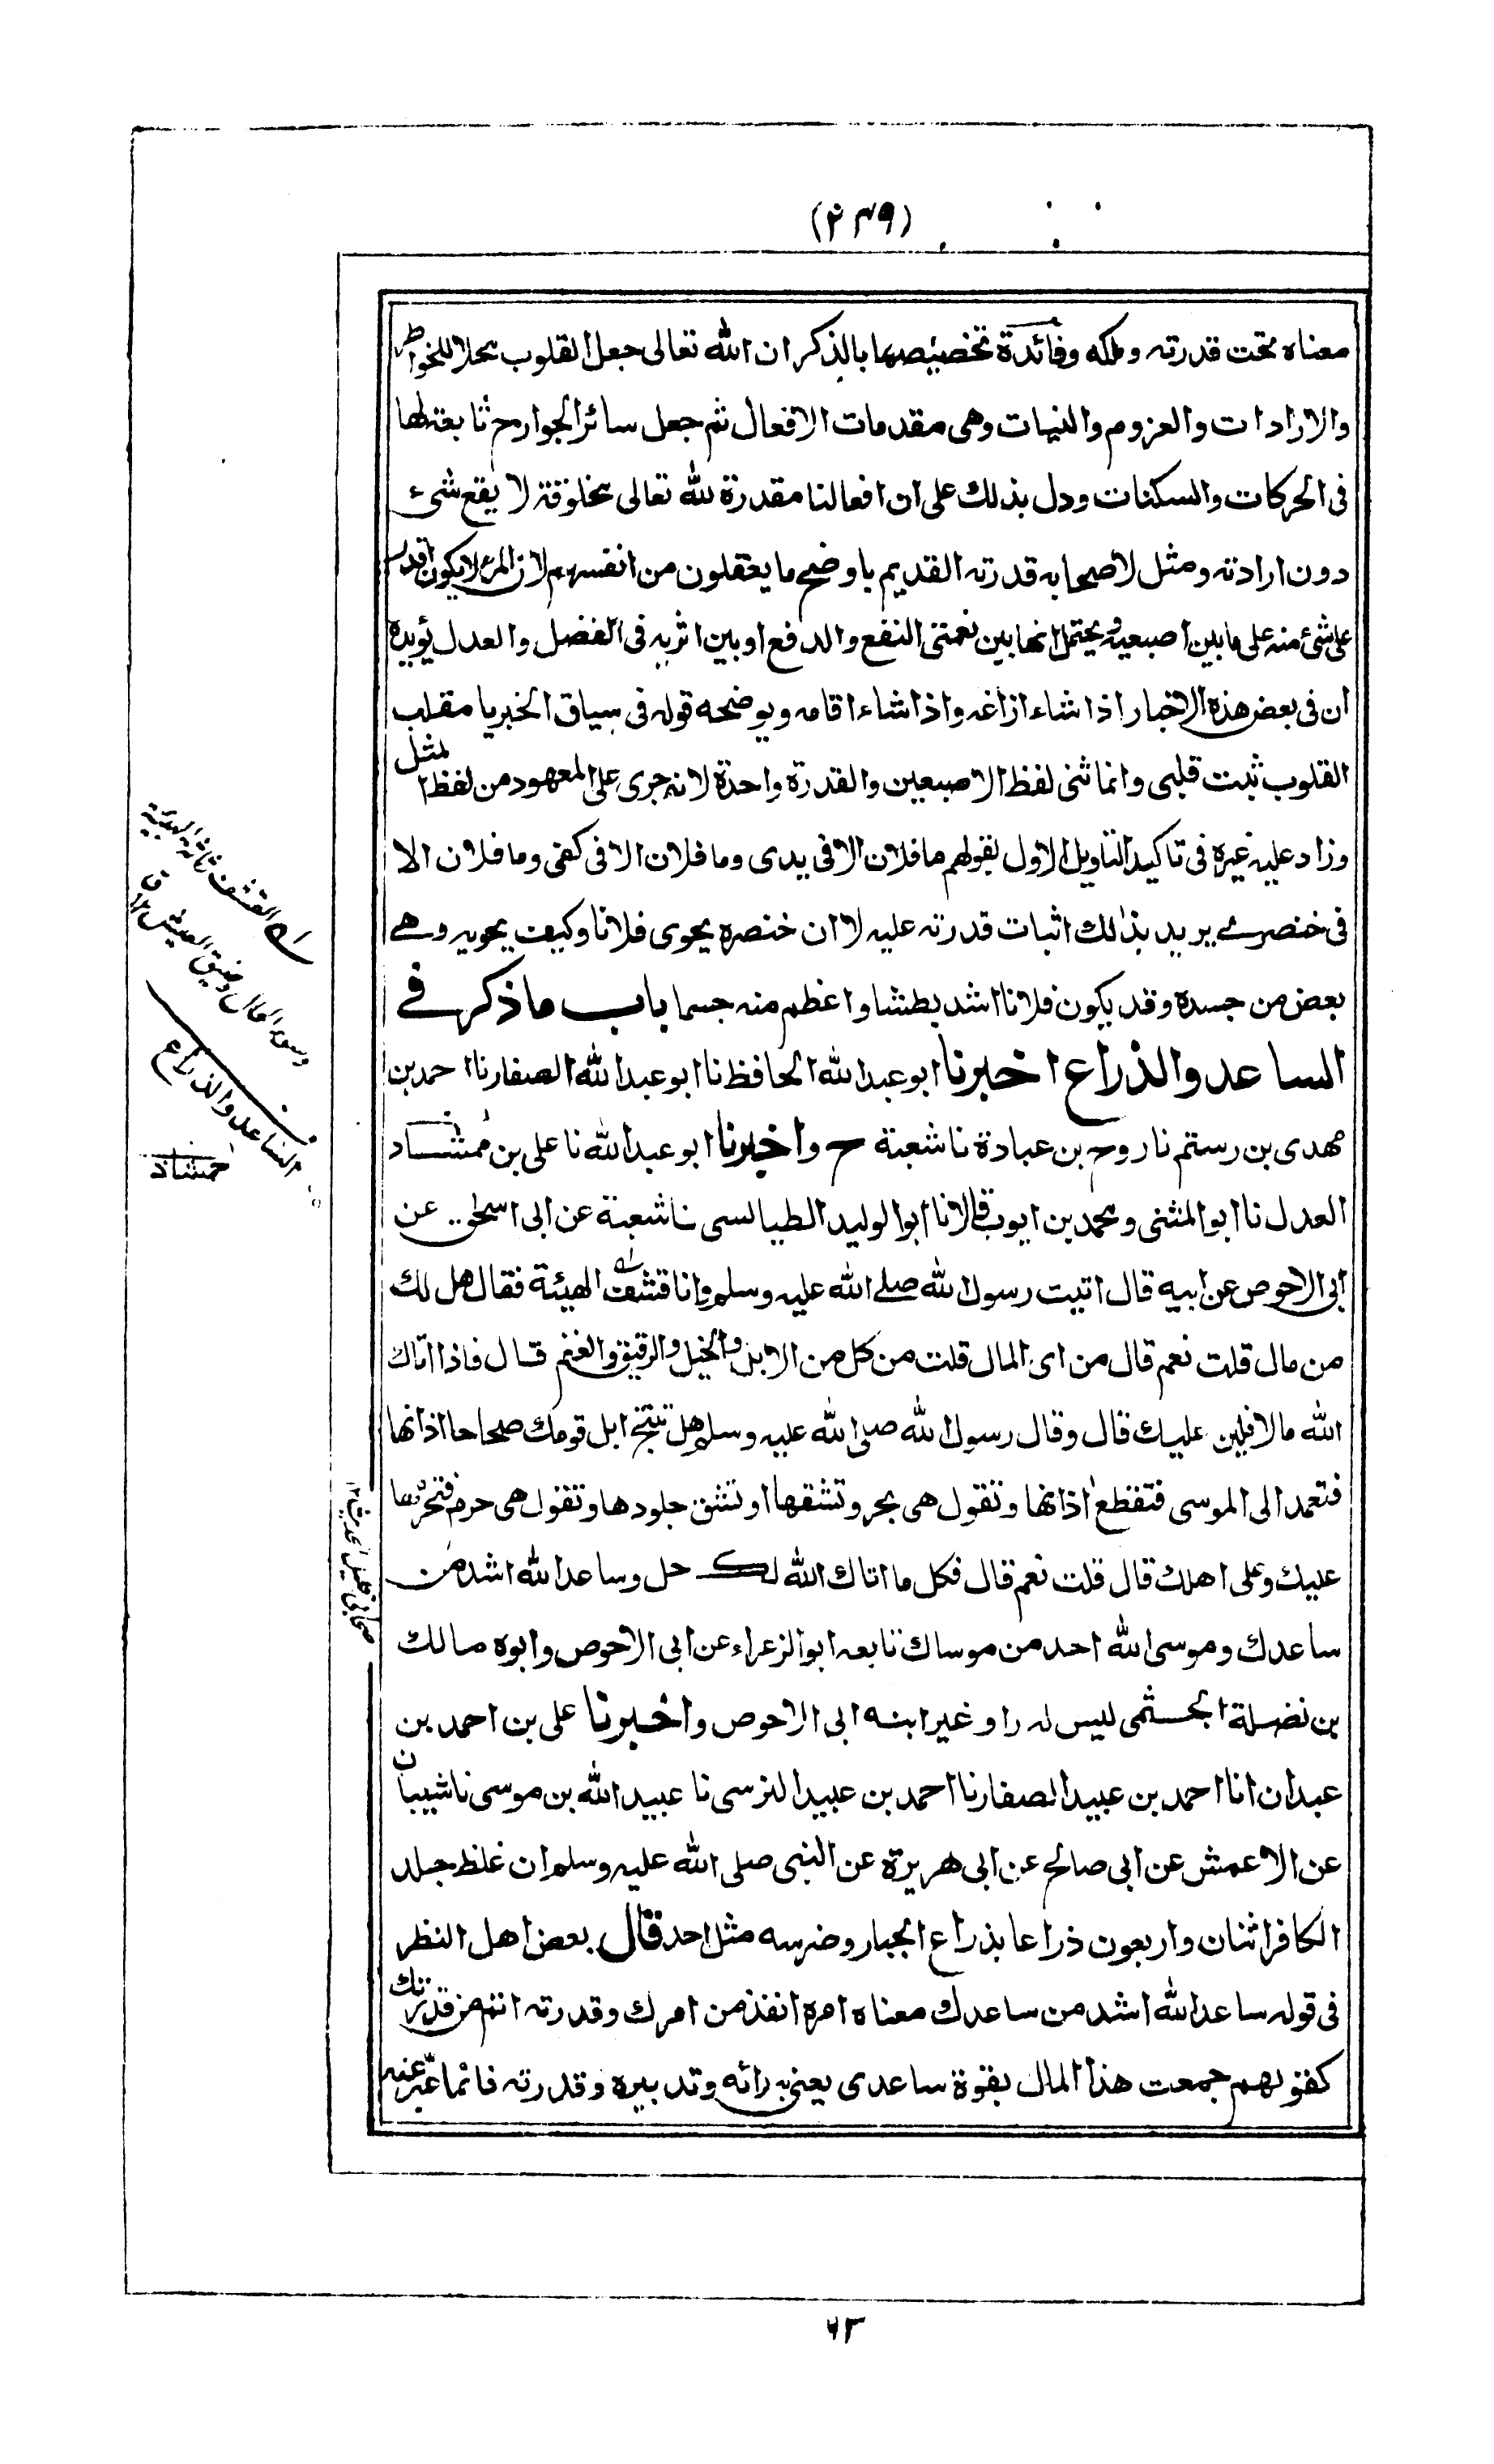 (٢٤٩)
معناه تحت قدرته وملكه وفائدة تخصيصها بالذكر ان الله تعالى جعل القلوب محلا للخواطر
والارادات والعزوم والنيات وهى مقدمات الافعال ثم جعل سائر الجوارح تابعة لها
فى الحركات والسكنات ودل بذلك على ان افعالنا مقدرة لله تعالى مخلوقة لا يقع شىء
دون ارادته ومثل لاصحابه قدرته القديم باوضح ما يعقلون من انفسهم لان المرء لا يكون اقدر
على شئ منه على ما بين اصبعيه ويحتمل انها بين نعمتى النفع والدفع او بين اثريه فى الفضل والعدل يؤيده
ان فى بعض هذه الاخبار اذا شاء ازاغه واذا شاء اقامه ويوضحه قوله فى سياق الخبر يا مقلب
القلوب ثبت قلبى وانما ثنى لفظ الاصبعين والقدرة واحدة لانه جرى على المعهود من لفظ المثل
وزاد عليه غيره فى تاكيد التاويل الاول بقولهم ما فلان الا فى يدى وما فلان الا فى كفى وما فلان الا
فى خنصرى يريد بذالك اثبات قدرته عليه لا ان خنصره يحوى فلانا وكيف يحويه وهى
بعض من جسده وقد يكون فلانا اشد بطشا واعظم منه جسما باب ما ذكر فى
الساعد والذراع اخبرنا ابو عبد الله الحافظ نا ابو عبد الله الصفار نا احمد بن
مهدى بن رستم نا روح بن عبادة نا شعبة ح واخبرنا ابو عبد الله نا على بن حمشاد
العدل نا ابو المثنى ومحمد بن ايوب قالا نا ابو الوليد الطيالسى نا شعبة عن ابى اسحق عن
ابى الاحوص عن ابيه قال اتيت رسول الله صلى الله عليه وسلم وانا قشف الهيئة فقال هل لك
من مال قلت نعم قال من اى المال قلت من كل من الابل والخيل والرقيق والغنم قال فاذا اتاك
الله مالا فلير عليك قال وقال رسول الله صلى الله عليه وسلم هل تنتج ابل قومك صحاحا اذانها
فتعمد الى الموسى فتقطع اذانها وتقول هى بحر وتشقها او تشق جلودها وتقول هى حرم فتحرمها
عليك وعلى اهلك قال قلت نعم قال فكل ما اتاك الله لك حل وساعد الله اشد من
ساعدك وموسى الله احد من موساك تابعه ابو الزعراء عن ابى الاحوص وابوه مالك
بن نضلة الجشمى ليس له راو غير ابنه ابى الاحوص واخبرنا على بن احمد بن
عبدان انا احمد بن عبيد الصفار نا احمد بن عبيد النرسى نا عبيد الله بن موسى نا شيبان
عن الاعمش عن ابى صالح عن ابى هريرة عن النبى صلى الله عليه وسلم ان غلظ جلد
الكافر اثنان واربعون ذراعا بذراع الجبار وضرسه مثل احد قال بعض اهل النظر
فى قوله ساعد الله اشد من ساعدك معناه امره انفذ من امرك وقدرته اتم من قدرتك
كقولهم جمعت هذا المال بقوة ساعدى يعنى به رائه وتدبيره وقدرته فانما عبر عنه
وسوء الحال وضيق العيش
الساعد والذراع
حمشاذ
صحابى قليل الحديث ١٢
٦٣